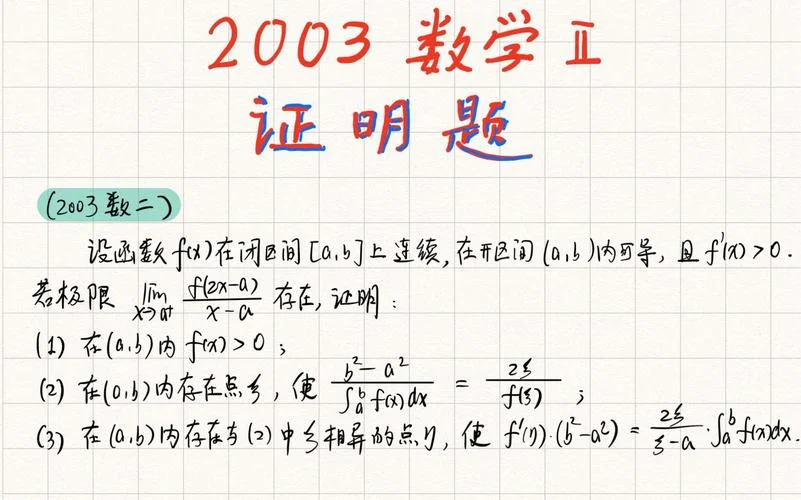 2003 数学 Ⅱ
证明题
(2003 数二)
设函数 f(x) 在闭区间 [a,b] 上连续, 在开区间 (a,b) 内可导, 且 f'(x) > 0.
若极限 lim_{x→a⁺} f(2x-a)/(x-a) 存在, 证明:
(1) 在 (a,b) 内 f(x) > 0 ;
(2) 在 (a,b) 内存在点 ξ, 使 (b²-a²)/∫ₐᵇ f(x)dx = 2ξ/f(ξ) ;
(3) 在 (a,b) 内存在与 (2) 中 ξ 相异的点 η, 使 f'(η)·(b²-a²) = 2ξ/(ξ-a)·∫ₐᵇ f(x)dx.